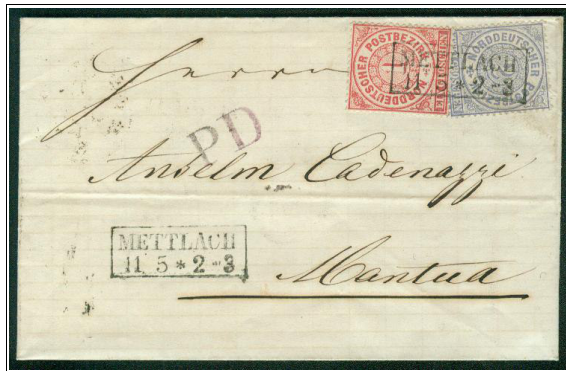 NORDDEUTSCHER POSTBEZIRK
NORDDEUTSCHER
METTLACH
11 5 * 2-3
Herrn
PD
Anselm Cadenazzi
METTLACH
11 5 * 2-3
Mantua